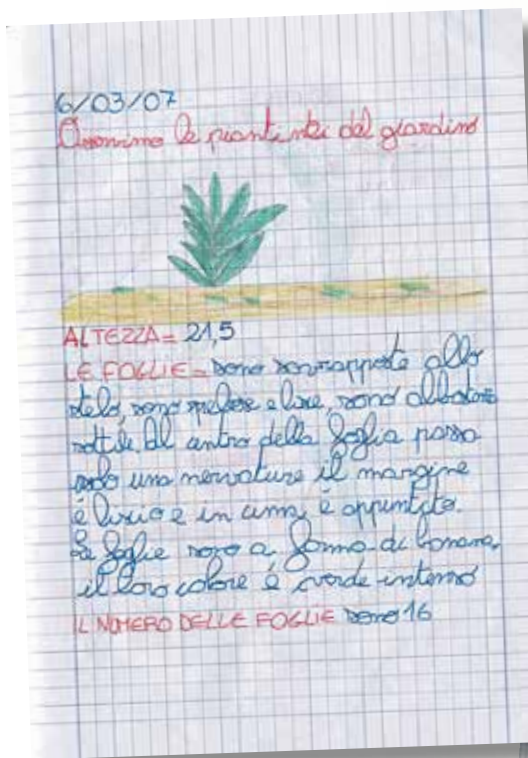 6/03/07
Osserviamo le piantine del giardino
ALTEZZA= 21,5
LE FOGLIE= sono sovrapposte allo
stelo, sono pelose e lisce, sono abbastanza
sottili. Al centro della foglia passa
solo una nervatura il margine
è liscio e in cima è appuntito.
Le foglie sono a forma di banana,
il loro colore è verde intenso
IL NUMERO DELLE FOGLIE sono 16